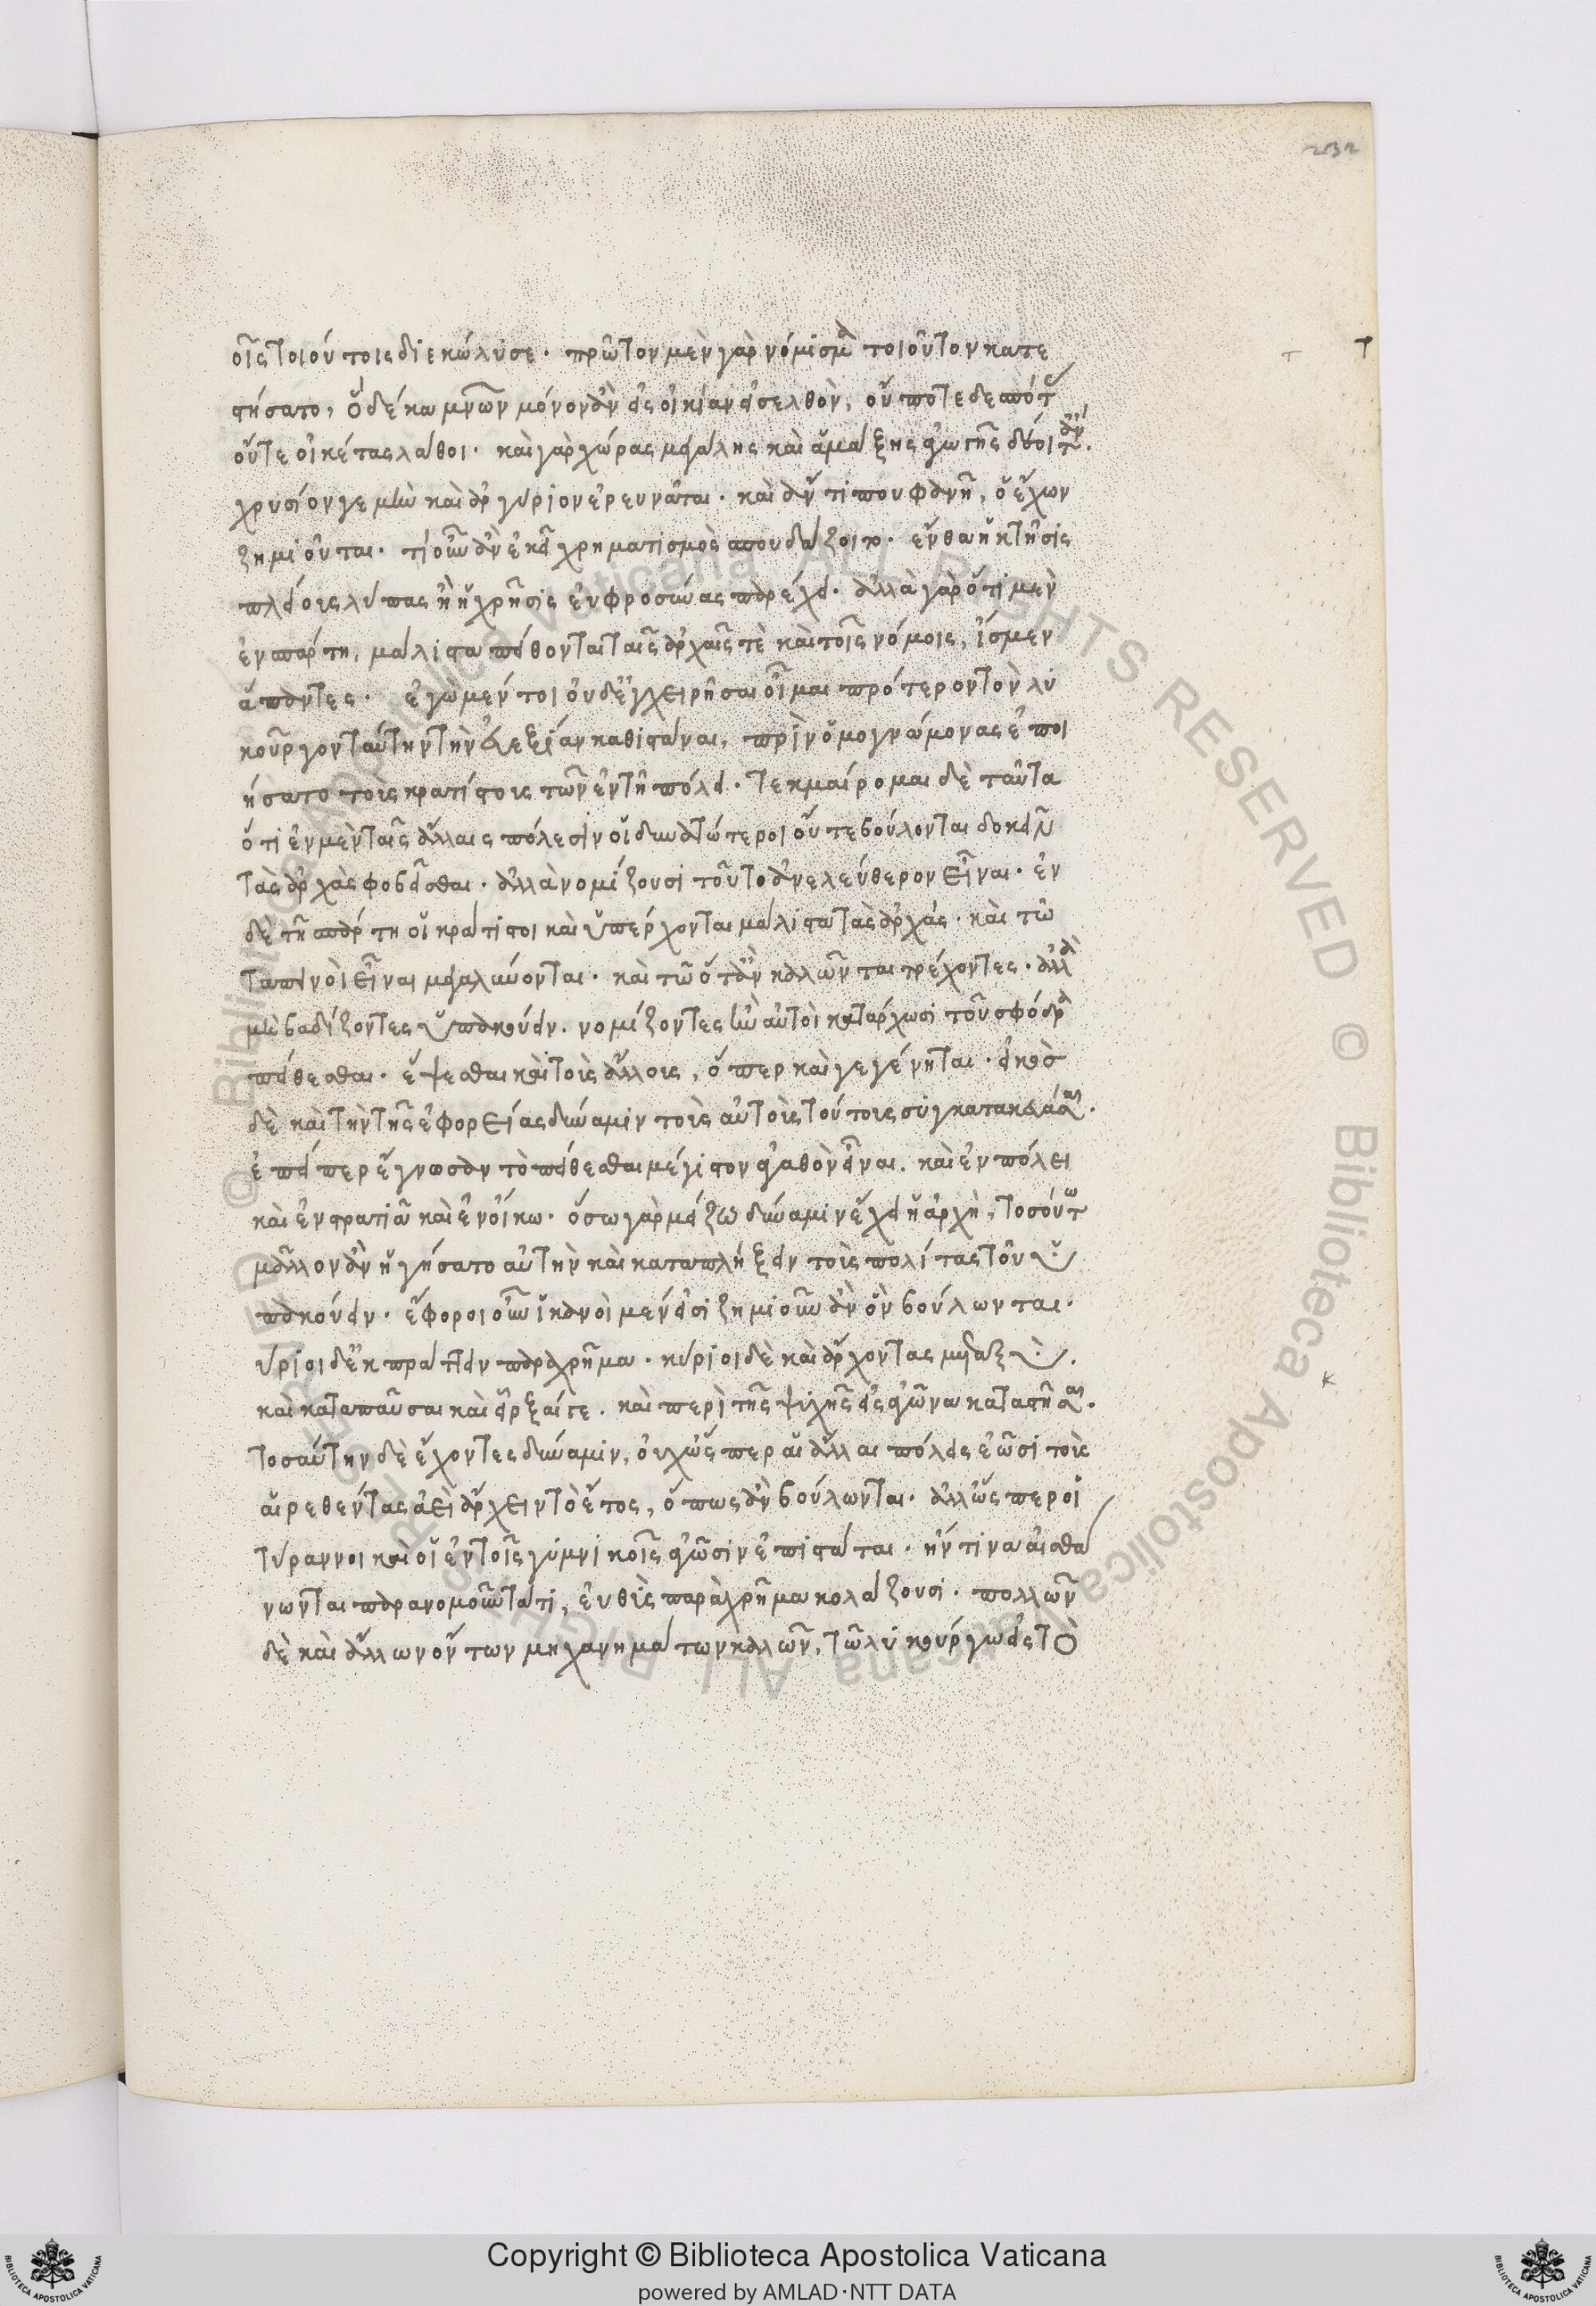 232
τ
οῖς τοιούτοις διεκώλυσε. πρῶτον μὲν γὰρ νόμισμα τοιοῦτον κατε
στήσατο, ὃ δέκα μνῶν μόνον ἂν εἰς οἰκίαν εἰσελθὸν, οὔποτε δεσπότας
οὔτε οἰκέτας λάθοι. καὶ γὰρ χώρας μεγάλης καὶ ἁμάξης ἀγωγῆς δέοιτ' ἄν.
χρυσίον γε μὴν καὶ ἀργύριον ἐρευνᾶται. καὶ ἄν τί που φανῇ, ὁ ἔχων
ζημιοῦται. τί οὖν ἂν ἐκεῖ χρηματισμὸς σπουδάζοιτο. ἔνθα ἡ κτῆσις
πλείους λύπας ἢ ἡ χρῆσις εὐφροσύνας παρέχει. ἀλλὰ γὰρ ὅτι μὲν
ἐν σπάρτῃ, μάλιστα πείθονται ταῖς ἀρχαῖς τὲ καὶ τοῖς νόμοις, ἴσμεν
ἅπαντες. ἐγὼ μέν τοι οὐδ' ἐγχειρῆσαι οἶμαι πρότερον τὸν λυ
κοῦργον ταύτην τὴν εὐεξίαν καθιστάναι, πρὶν ὁμογνώμονας ἐποι
ήσατο τοὺς κρατίστους τῶν ἐν τῇ πόλει. τεκμαίρομαι δὲ ταῦτα
ὅτι ἐν μὲν ταῖς ἄλλαις πόλεσιν οἱ δυνατώτεροι οὔτε βούλονται δοκεῖν
τὰς ἀρχὰς φοβεῖσθαι. ἀλλὰ νομίζουσι τοῦτο ἀνελεύθερον εἶναι. ἐν
δὲ τῇ σπάρτῃ οἱ κράτιστοι καὶ ὑπέρχονται μάλιστα τὰς ἀρχάς. καὶ τῷ
ταπεινοὶ εἶναι μεγαλύνονται. καὶ τῷ ὅταν καλῶνται τρέχοντες. ἀλλὰ
μὴ βαδίζοντες ὑπακούειν. νομίζοντες ἢν αὐτοὶ κατάρχωσι τοῦ σφόδρα
πείθεσθαι. ἕψεσθαι καὶ τοὺς ἄλλους, ὅπερ καὶ γεγένηται. εἰκὸς
δὲ καὶ τὴν τῆς ἐφορείας δύναμιν τοὺς αὐτοὺς τούτους συγκατασκευάσαι.
ἐπείπερ ἔγνωσαν τὸ πείθεσθαι μέγιστον ἀγαθὸν εἶναι. καὶ ἐν πόλει
καὶ ἐν στρατιᾷ καὶ ἐν οἴκῳ. ὅσῳ γὰρ μείζω δύναμιν ἔχει ἡ ἀρχὴ, τοσούτῳ
μᾶλλον ἂν ἡγήσατο αὐτὴν καὶ καταπλήξειν τοὺς πολίτας τοῦ ὑ
πακούειν. ἔφοροι οὖν ἱκανοὶ μέν εἰσι ζημιοῦν ἂν ὃν βούλωνται.
κύριοι δ' ἐκπράττειν παραχρῆμα. κύριοι δὲ καὶ ἄρχοντας μεταξὺ.
κ
καὶ καταπαῦσαι καὶ εἵρξαί τε. καὶ περὶ τῆς ψυχῆς εἰς ἀγῶνα καταστῆσαι.
τοσαύτην δὲ ἔχοντες δύναμιν, οὐχ ὥσπερ αἱ ἄλλαι πόλεις ἐῶσι τοὺς
αἱρεθέντας ἀεὶ ἄρχειν τὸ ἔτος, ὅπως ἂν βούλωνται. ἀλλ' ὥσπερ οἱ
τύραννοι καὶ οἱ ἐν τοῖς γυμνικοῖς ἀγῶσιν ἐπιστάται. ἤν τινα αἰσθά
νωνται παρανομοῦντά τι, εὐθὺς παραχρῆμα κολάζουσι. πολλῶν
δὲ καὶ ἄλλων ὄντων μηχανημάτων καλῶν, τῷ λυκούργῳ εἰς τὸ
Copyright © Biblioteca Apostolica Vaticana
powered by AMLAD·NTT DATA